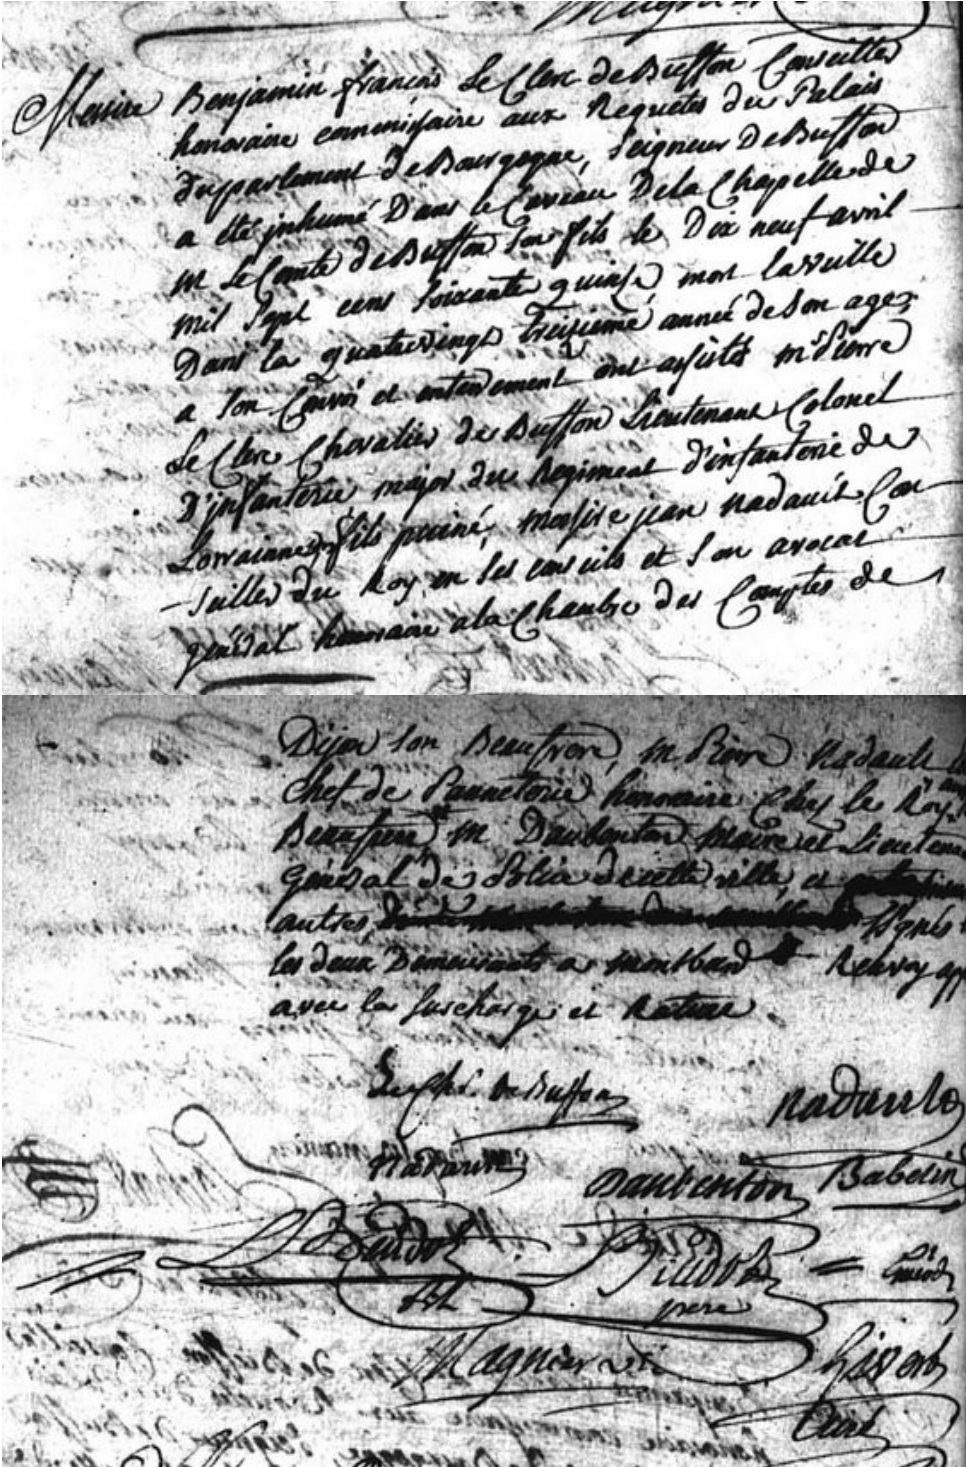 Messire Benjamin françois Le Clerc de Buffon Conseiller
honoraire commissaire aux Requêtes du Palais
du parlement de Bourgogne, Seigneur De Buffon
a été inhumé Dans le Caveau De la Chapelle de
m Le Comte de Buffon son fils le Dix neuf avril
mil sept cens soixante quinze mort la veille
Dans la quatrevingt treizieme année de son age;
a son Convoi et enterrement ont assistés mre Pierre
Le Clerc Chevalier de Buffon Lieutenant Colonel
D'infanterie major du Regiment d'infanterie de
Lorrainne, fils puiné, messire jean nadault Con
-seiller du Roy en ses conseils et son avocat
général honoraire a la Chambre des Comptes de
Dijon son Beaufrere, m Pierre nadault
Chef de Panneterie honoraire Chez le Roy
Beaufrere m Daubenton maire et Lieutenant
général de Police de cette ville, et
autres signés
les deux Demeurants a montbard Renvoy app
avec la surcharge et Rature
Le Chr. De Buffon nadault
nadault Daubenton Babelin
Baudot fils Guiod
pere
Magnien vic
Curé